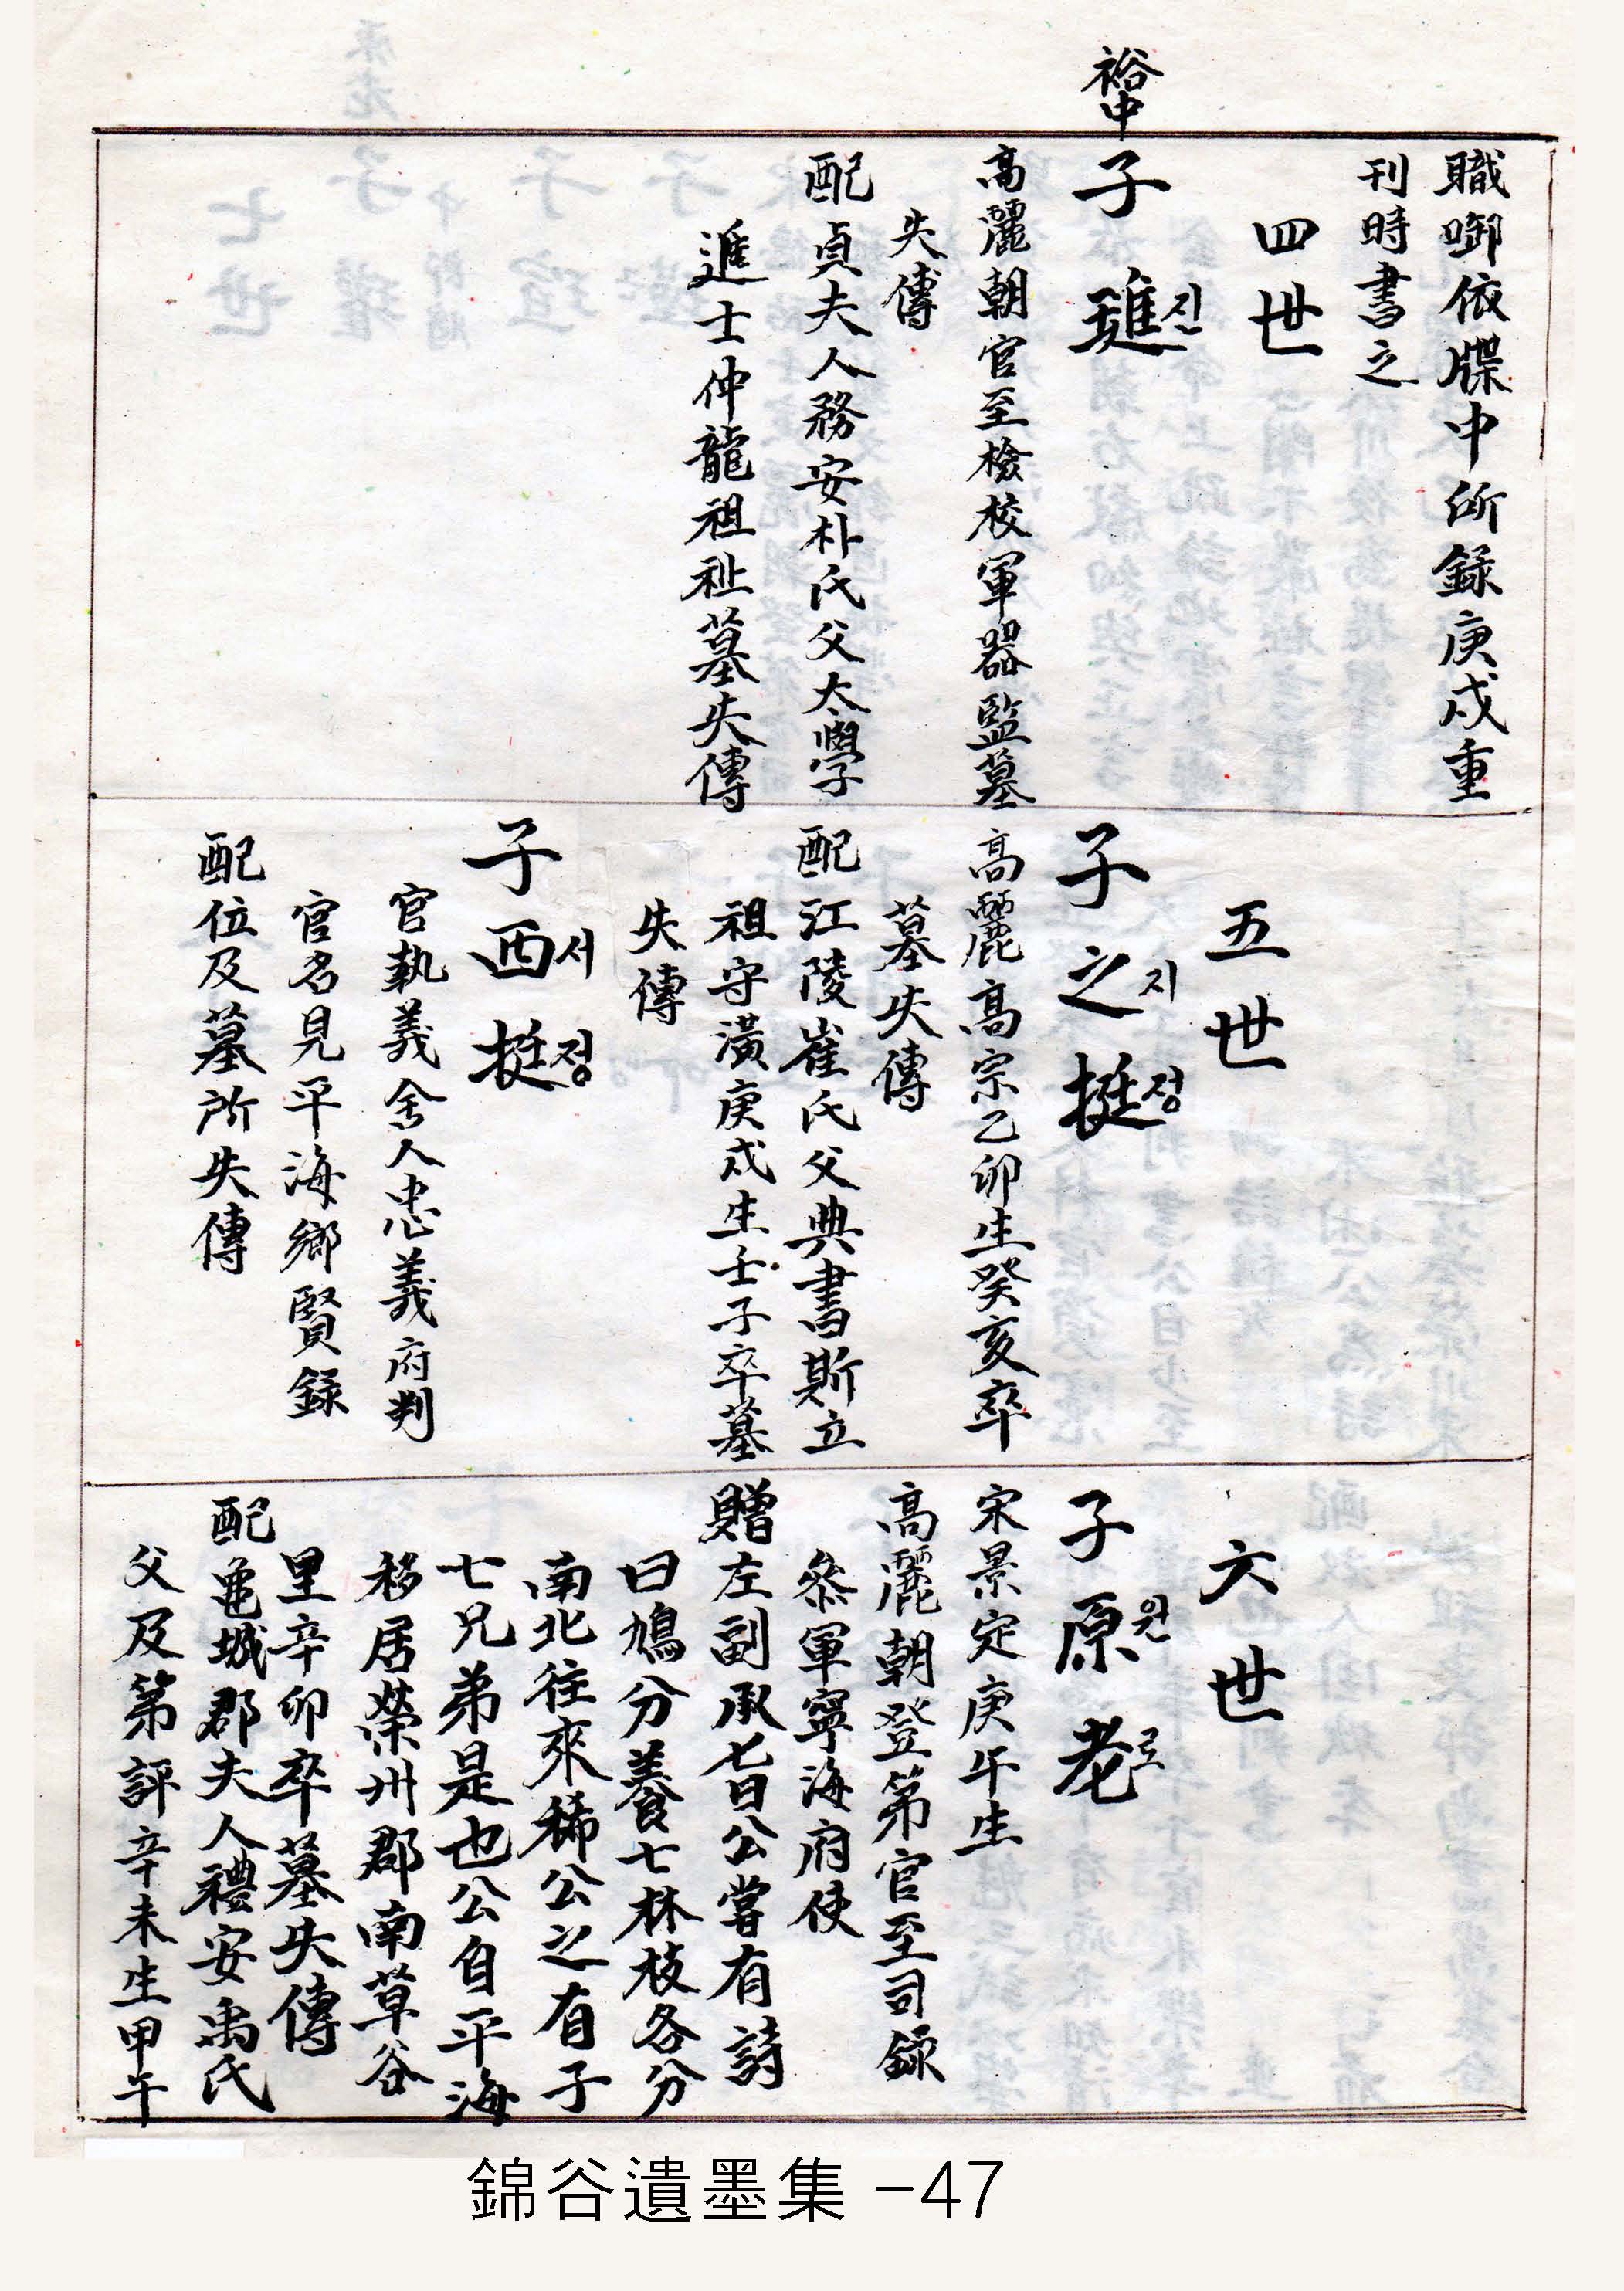 職啣依牒中所錄庚戌重
刊時書之
四世
裕中
子璡진
高麗朝官至檢校軍器監墓
失傳
配貞夫人務安朴氏父太學
進士仲龍祖祉墓失傳
五世
子之지挺정
高麗高宗乙卯生癸亥卒
墓失傳
配江陵崔氏父典書斯立
祖守潢庚戌生士子卒墓
失傳
子西서挺정
官執義舍人忠義府判
官名見平海鄉賢錄
配位及墓所失傳
六世
子原원老로
宋景定庚午生
高麗朝登第官至司錄
叅軍寧海府使
贈左副承旨公嘗有詩
曰鳩分養七林枝各分
南北往來稀公之有子
七兄弟是也公自平海
移居榮州郡南草谷
里辛卯卒墓失傳
配龜城郡夫人禮安禹氏
父及第評辛未生甲午
錦谷遺墨集 -47